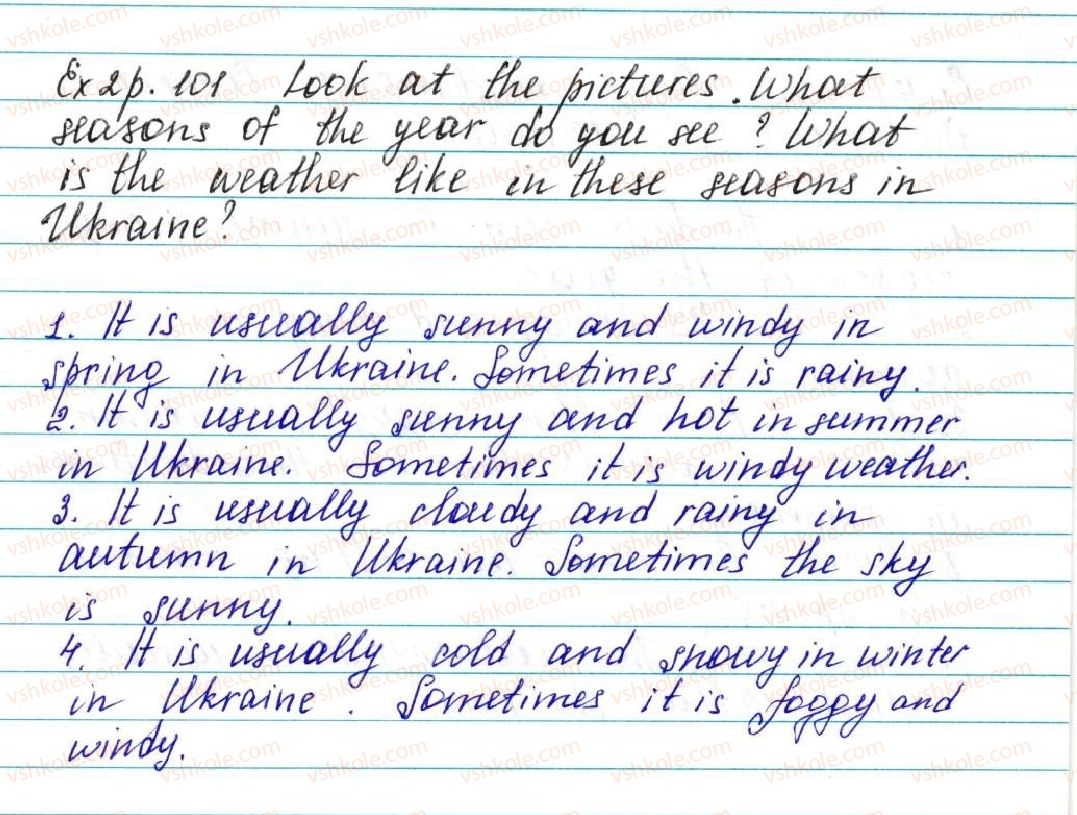 Ex 2 p. 101 Look at the pictures. What
seasons of the year do you see? What
is the weather like in these seasons in
Ukraine?
1. It is usually sunny and windy in
spring in Ukraine. Sometimes it is rainy.
2. It is usually sunny and hot in summer
in Ukraine. Sometimes it is windy weather.
3. It is usually cloudy and rainy in
autumn in Ukraine. Sometimes the sky
is sunny.
4. It is usually cold and snowy in winter
in Ukraine. Sometimes it is foggy and
windy.